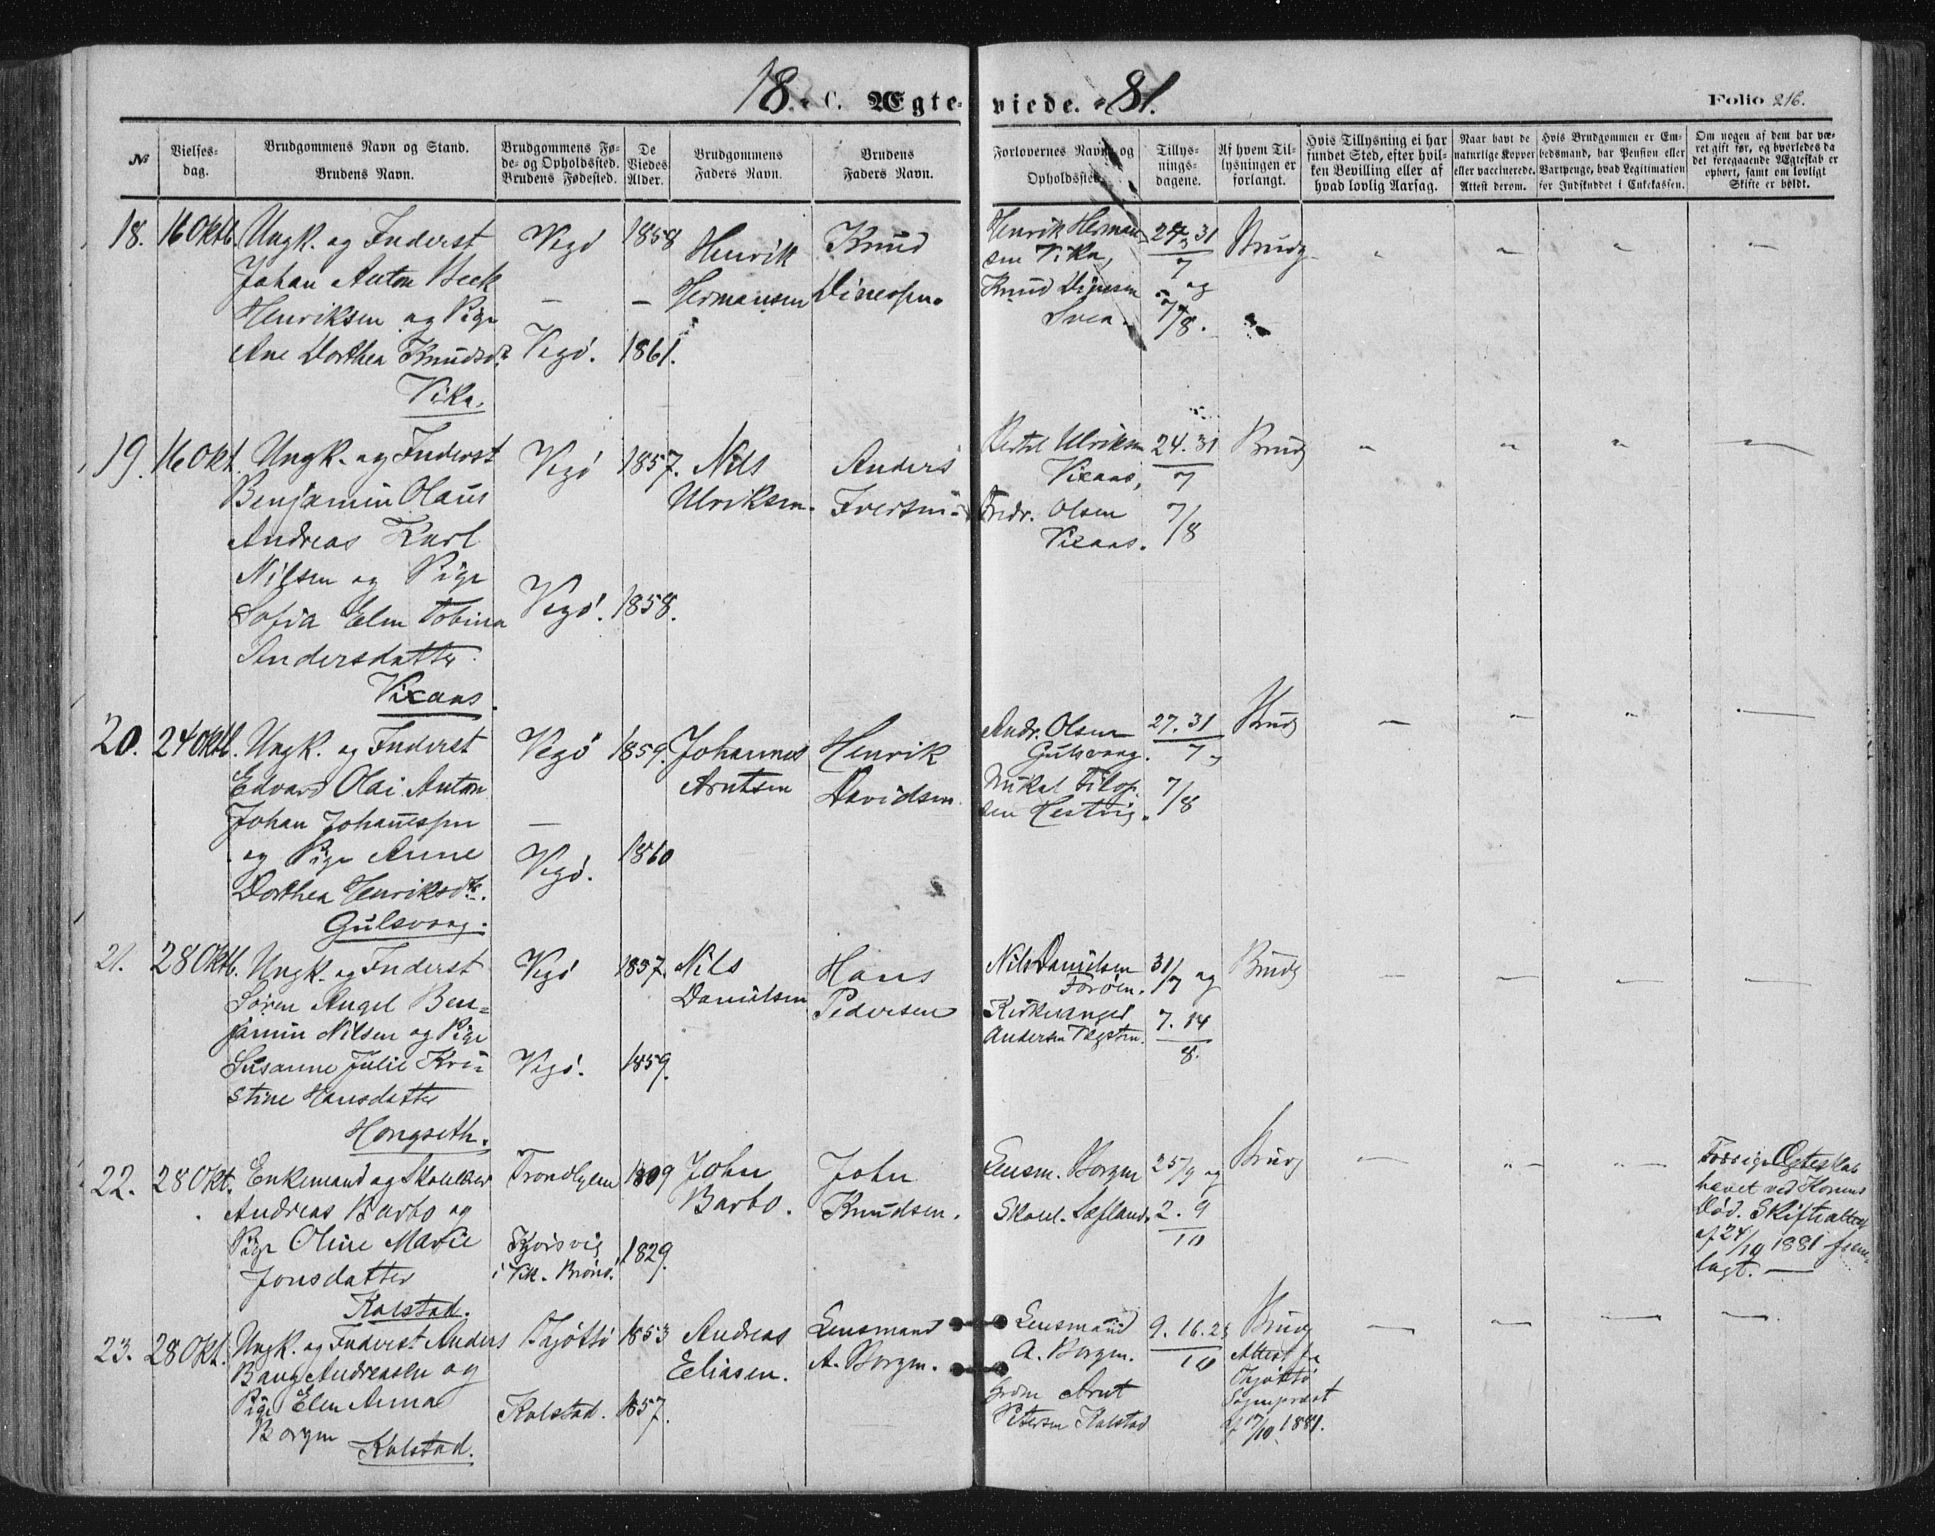 18 C. Ægte-viede. 81.
Folio 216.
№
Vielses-dag.
Brudgommens Navn og Stand.
Brudens Navn.
Brudgommens Fø-
de- og Opholdssted.
Brudens Fødested.
De
Viedes
Alder.
Brudgommens
Faders Navn.
Brudens
Faders Navn.
Forlovernes Navn og
Opholdssted.
Tillys-
nings-
dagene.
Af hvem Til-
lysningen er
forlangt.
Hvis Tillysning ei har
fundet Sted, efter hvil-
ken Bevilling eller af
hvad lovlig Aarsag.
Naar havt de
naturlige Kopper
eller vaccinerede.
Attest derom.
Hvis Brudgommen er Em-
bedsmand, har Pension eller
Vartpenge, hvad Legitimation
for Indskuddet i Enkekassen.
Om nogen af dem har væ-
ret gift før, og hvorledes da
det foregaaende Ægteskab er
ophørt, samt om lovligt
Skifte er holdt.
18. 16 Oktb. Ungk. og Inderst
Johan Anton Beck
Henriksen og Pige
Ane Dorthea Knudsdr.
Vika.
Vegø
—
Vegø.
1858
—
1861.
Henrik
Hermansen
Knud
Dinessen.
Henrik Herman
sen Vika,
Knud Dinesen
Svea.
24. 31
7
og
7/8.
Brudg
19. 16 Okt. Ungk. og Inderst
Benjamin Olaus
Andreas Karl
Nilsen og Pige
Sofia Elen Tobina
Andersdatter
Vixaas.
Vegø
Vegø.
1857.
1858.
Nils
Ulriksen.
Anders
Iversen
Ulriksen
Vixaas,
Fredr. Olsen
Vixaas.
24. 31
7
7/8
Brudg
20. 24 Oktb. Ungk. og Inderst
Edvard Olai Anton
Johan Johannessen
og Pige Anne
Dorthea Henriksdtr.
Gulsvaag.
Vegø
—
Vegø.
1859.
1860
Johannes
Arntsen
Henrik
Davidsen.
Andr. Olsen
Gulsvaag.
Mikal Filop
sen Hestvig.
27. 31
7
7/8
Brudg
21. 28 Oktb. Ungk. og Inderst
Søren Angel Ben-
jamin Nilsen og Pige
Susanne Julie Kri-
stine Hansdatter
Hongseth.
Vegø
Vegø.
1857.
1859.
Nils
Danielsen
Hans
Pedersen
Nils Danielsen
Forøen.
Kirkesanger
Andersen
31/7 og
7. 14
8.
Brudg
22. 28 Okt. Enkemand og Skolelærer
Andreas Barbo og
Pige Oline Marie
Jonsdatter
Kolstad.
Trondhjem
i Vik. Brønø.
1809
1829.
John
Barbo.
John
Knudsen.
Lensm. Borgen
Skoul. Sæfland.
25/9 og
2. 9
10
Brudg
Forrige Ægteskab
hævet ved Konens
Død. Skifteattest
af 24/10 1881 frem-
lagt. —
23. 28 Okt. Ungk. og Inderst Anders
Bang Andreassen og
Pige Elen Anna
Borgen
Kolstad.
Thjøttø
Kolstad.
1853
1857.
Andreas
Eliasen.
Lensmand
A. Borgen.
Lensmand
A. Borgen.
Arnt
Petersen Kolstad
9. 16. 23
10
Brudg
Attest fra
Thjøttø
Sognepræst
af 17/10 1881.